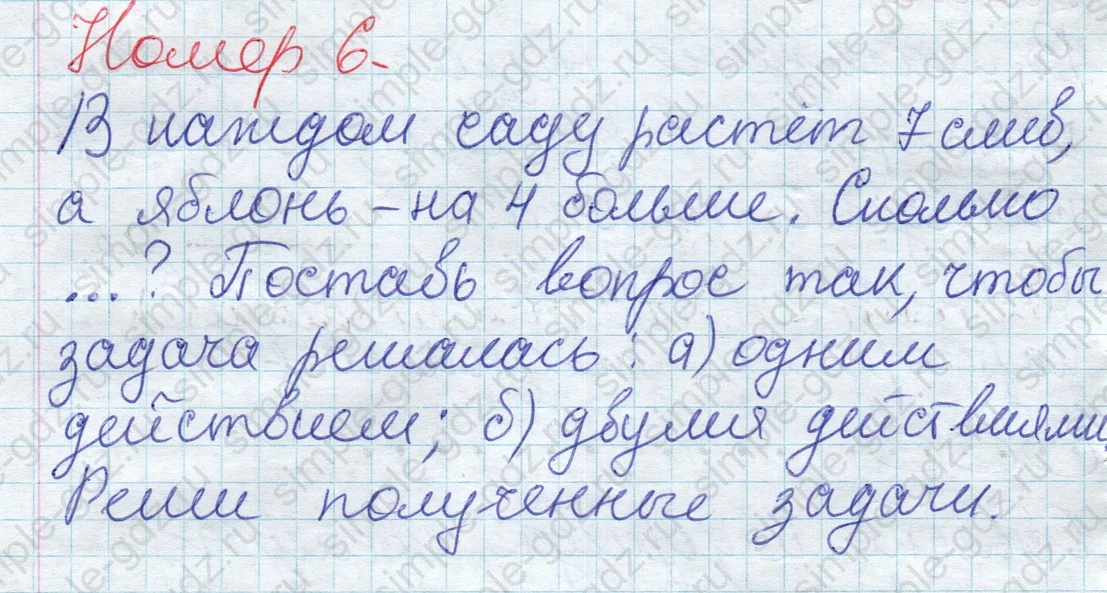 Номер 6.
В каждом саду растёт 7 слив,
а яблонь – на 4 больше. Сколько
...? Поставь вопрос так, чтобы
задача решалась: а) одним
действием; б) двумя действиями.
Реши полученные задачи.